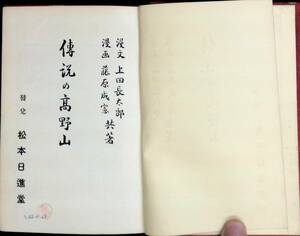 漫文 上田長太郎
漫画 藤原成憲 共著
傳説の高野山
發兌 松本日進堂